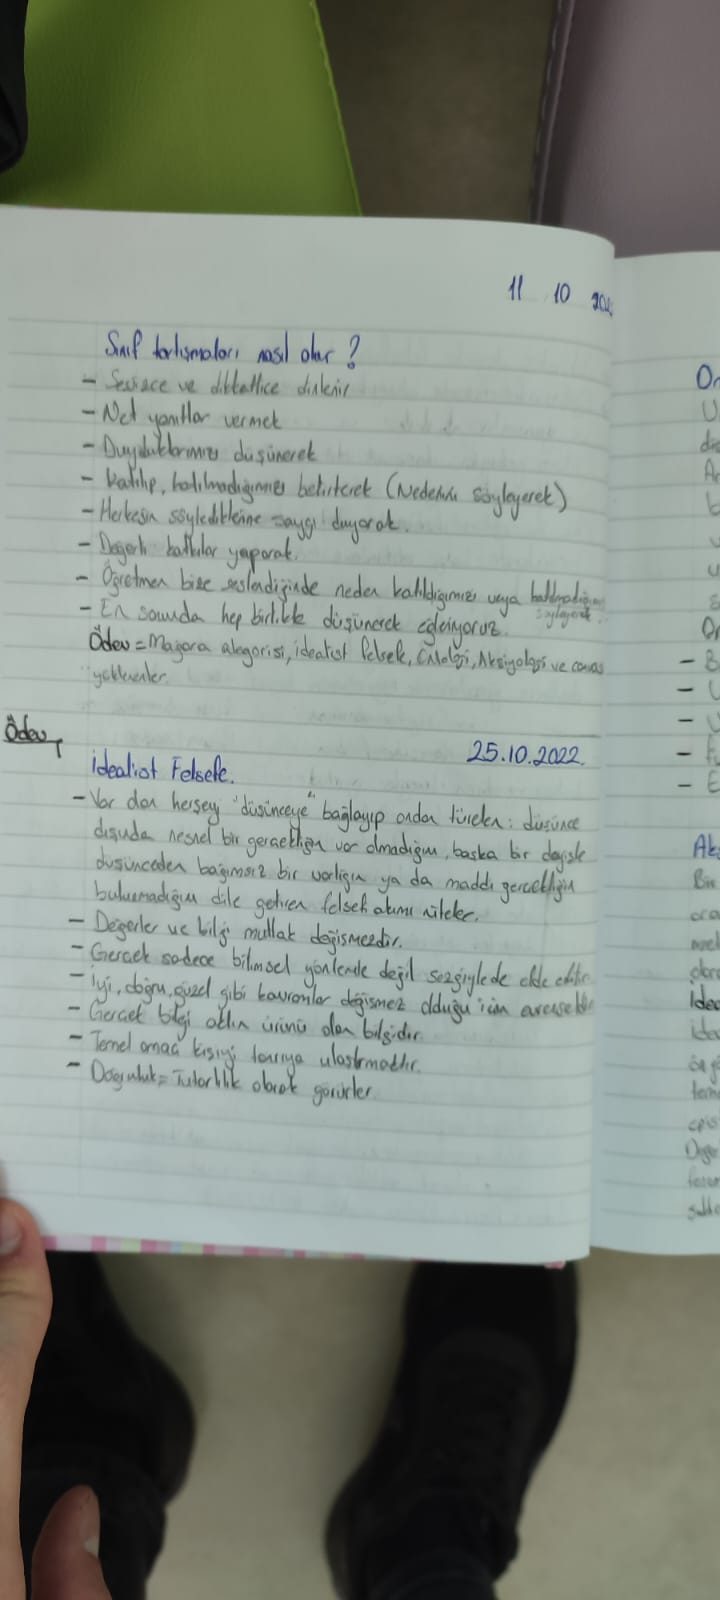 11 10
Sınıf tartışmaları nasıl olur?
- ve dikkatlice dinlenir
- Net yanıtlar vermek
- Duyduklarımızı düşünerek
- Katılıp, katılmadığımızı belirterek (Nedenini söyleyerek)
- Herkesin söylediklerine saygı duyarak.
- Değerli katkılar yaparak.
- Öğretmen bize seslendiğinde neden katıldığımızı veya katılmadığımızı
söyleyerek
- En sonunda hep birlikte düşünerek
Ödev = Mağara alegorisi, idealist felsefe, Aksiyoloji ve
Ödev
25.10.2022.
idealist Felsefe.
- Var olan herşeyi "düşünceye" bağlayıp ondan türeten: düşünce
dışında nesnel bir gerçekliğin var olmadığını, başka bir deyişle
düşünceden bağımsız bir varlığın ya da maddi gerçekliğin
bulunmadığını dile getiren felsefe akımı niteler.
- Değerler ve bilgi mutlak değişmezdir.
- Gerçek sadece bilimsel yönlemle değil sezgiylede elde edilir
- İyi, doğru, güzel gibi kavramlar değişmez olduğu için evrenseldir
- Gerçek bilgi aklın ürünü olan bilgidir.
- Temel amaç kişiyi tanrıya ulaştırmaktır.
- Doğruluk = Tutarlılık olarak görürler.